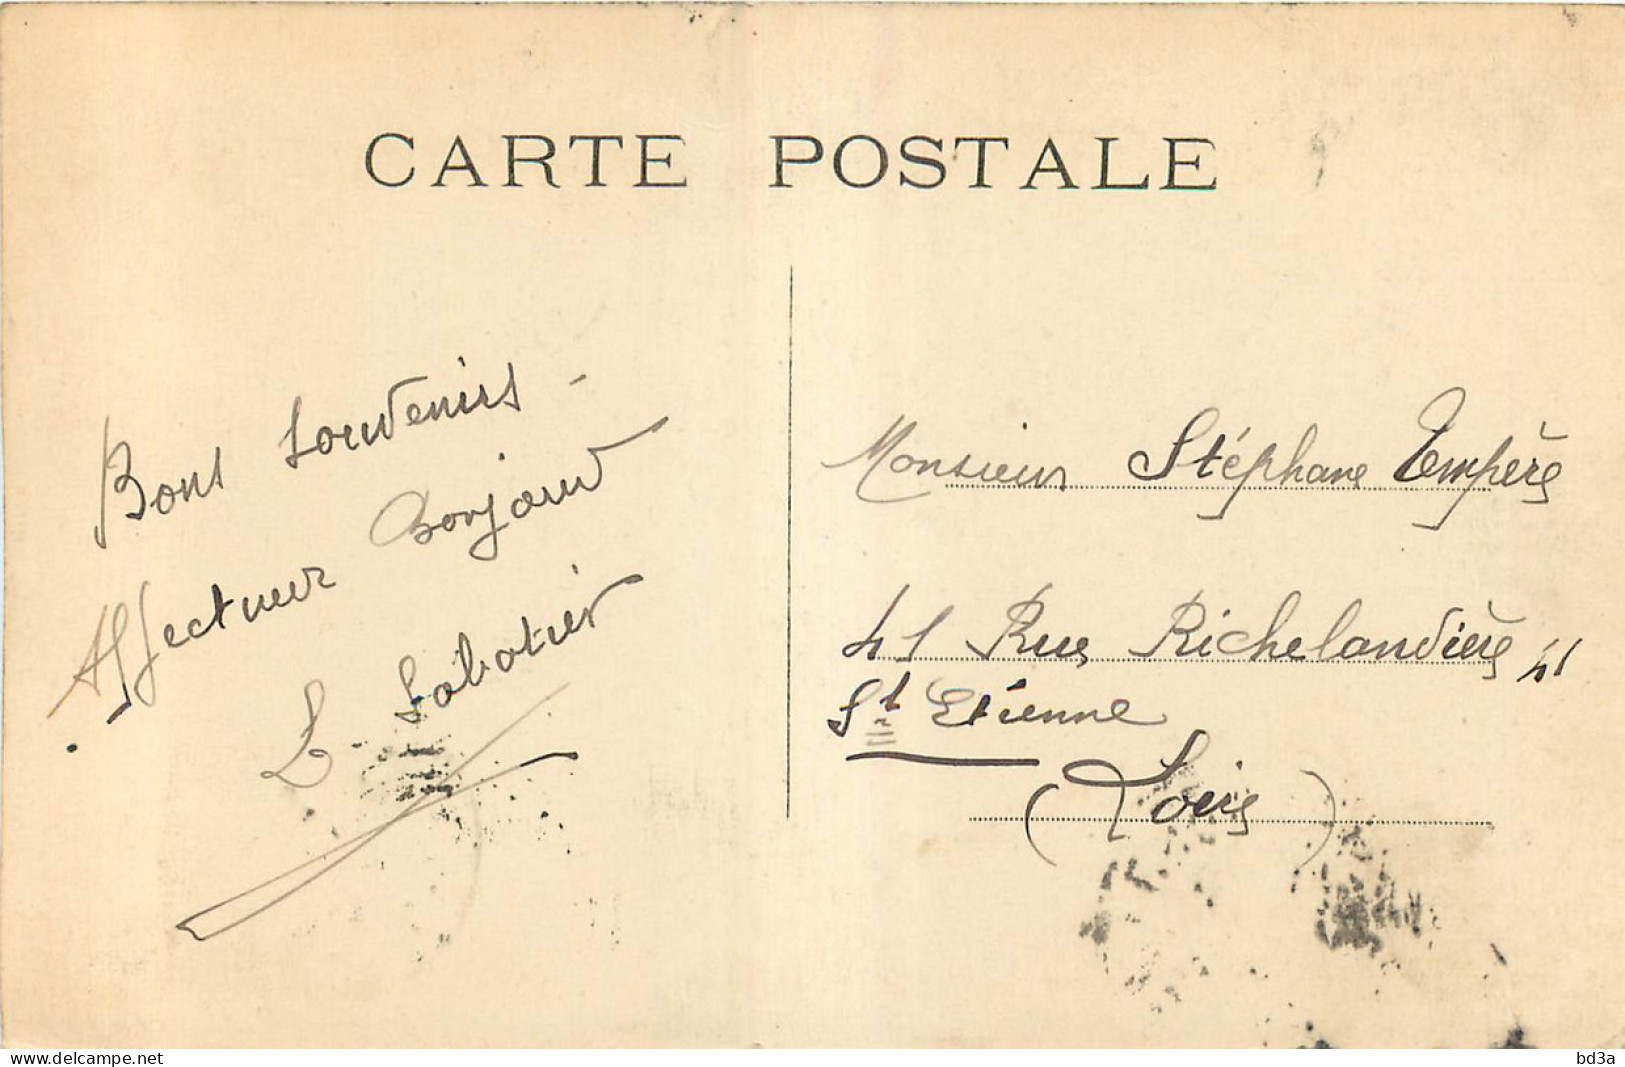 CARTE POSTALE
Bons Souvenirs -
Affectueux Bonjour
L Sabatier
Monsieur Stéphane Tempère
41 Rue Richelandière 41
St Etienne
(Loire)
www.delcampe.net
bd3a